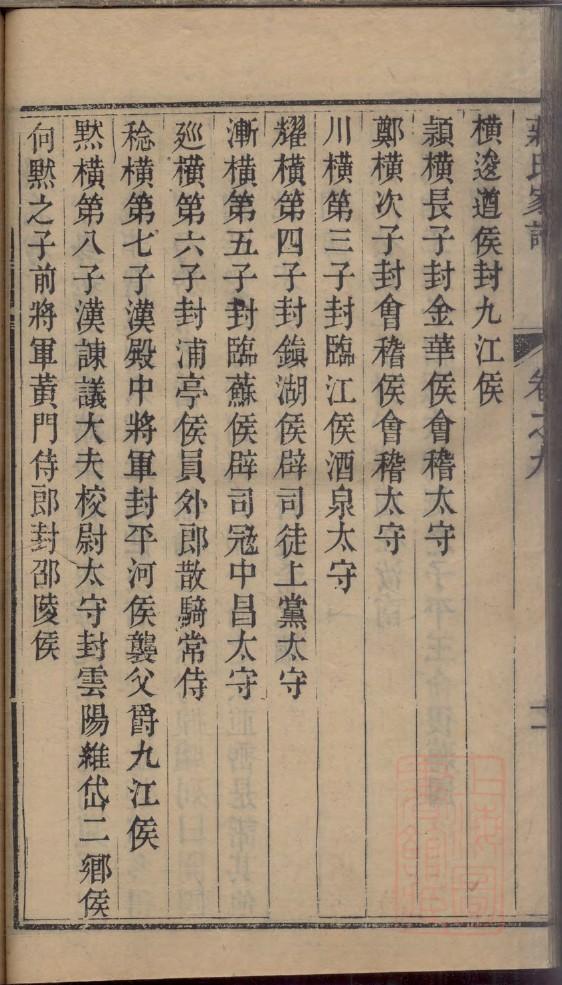 蔣氏家譜 卷之九 十一
橫逡遒侯封九江侯
頴橫長子封金華侯會稽太守
鄭橫次子封會稽侯會稽太守
川橫第三子封臨江侯酒泉太守
耀橫第四子封鎮湖侯辟司徒上黨太守
漸橫第五子封臨蘇侯辟司冦中昌太守
廵橫第六子封浦亭侯員外郎散騎常侍
稔橫第七子漢殿中將軍封平河侯襲父爵九江侯
黙橫第八子漢諌議大夫校尉太守封雲陽維岱二鄉侯
何黙之子前將軍黃門侍郎封邵陵侯